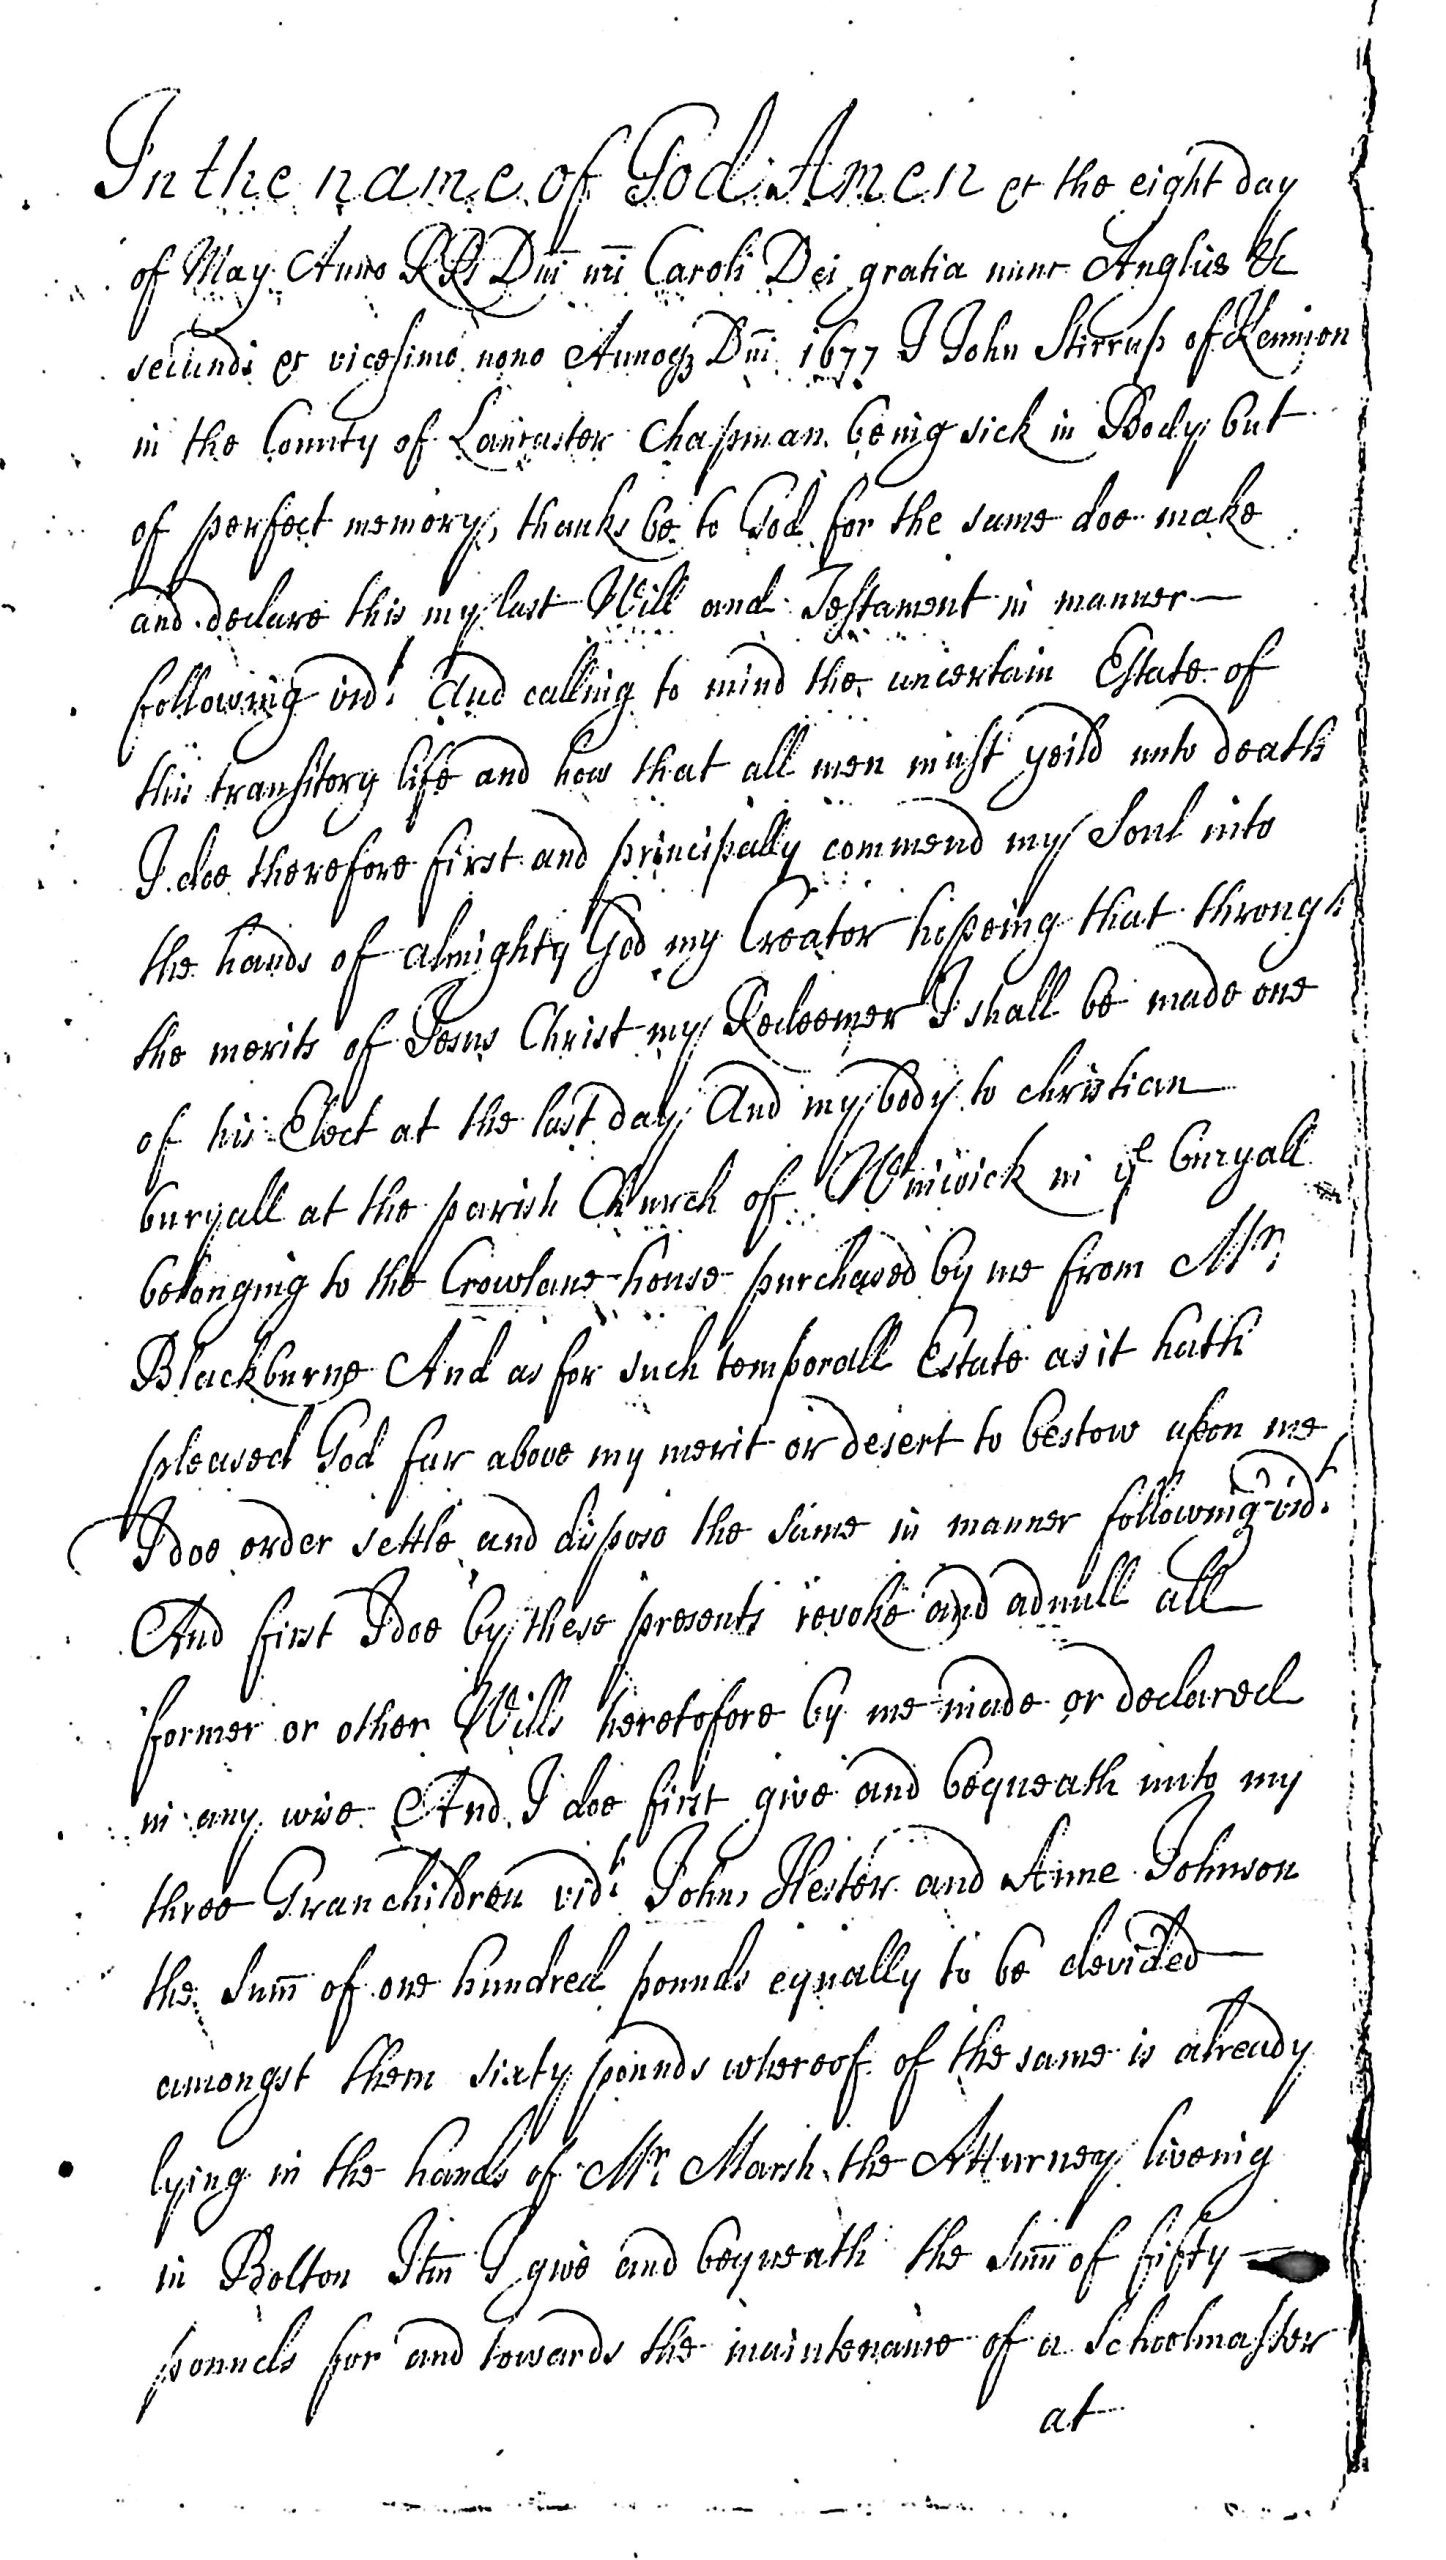 In the name of God Amen et the eight day
of May Anno RRs Dni nri Caroli Dei gratia nunc Angliæ &c
secundi et vicesimo nono Annoq Dni 1677 I John Stirrup of Kennion
in the County of Lancaster Chapman being sick in Body but
of perfect memory, thanks be to God for the same doe make
and declare this my last Will and Testament in manner
following vidt And calling to mind the uncertain Estate of
this transitory life and how that all men must yeild unto death
I doe therefore first and principally commend my Soul into
the hands of almighty God my Creator hopeing that through
the merits of Jesus Christ my Redeemer I shall be made one
of his Elect at the last day, And my body to christian
buryall at the parish Church of Winwick in ye buryall
belonging to the Crowlane-house purchased by me from Mr,
Blackburne And as for such temporall Estate as it hath
pleased God far above my merit or desert to bestow upon me
I doe order settle and dispose the same in manner following vidt
And first I doe by these presents revoke and adnull all
former or other Wills heretofore by me made or declared
in any wise And I doe first give and bequeath unto my
three Granchildren vidt John, Hester and Anne Johnson
the Sum̄ of one hundred pounds equally to be devided
amongst them sixty pounds whereof of the same is already
lying in the hands of Mr Marsh the Atturney liveing
in Bolton Itm̄ I give and bequeath the Sum̄ of fifty
pounds for and towards the maintenance of a Schoolmaster
at